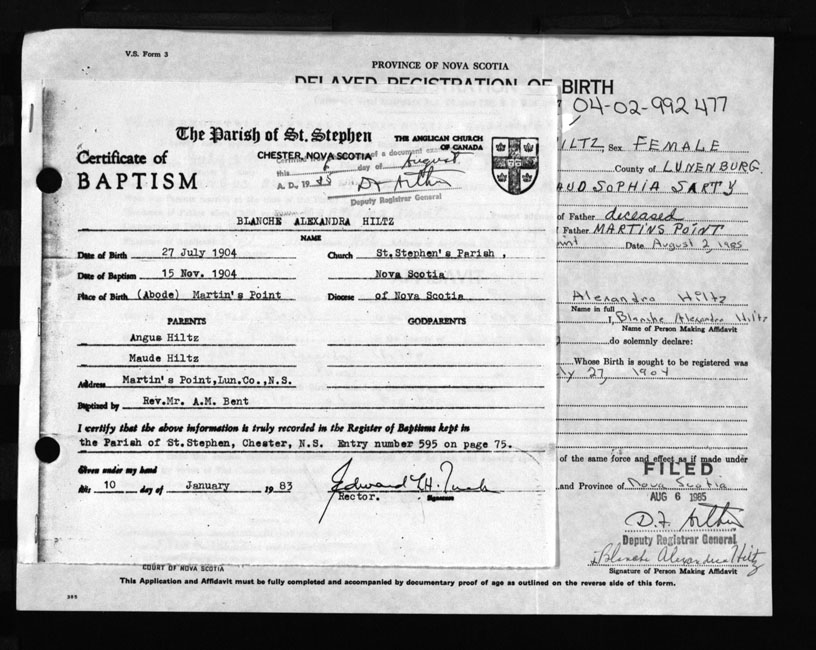 V.S. Form 3
PROVINCE OF NOVA SCOTIA
DELAYED REGISTRATION OF BIRTH
04-02-992477
The Parish of St. Stephen
THE ANGLICAN CHURCH
OF CANADA
CHESTER, NOVA SCOTIA
Certificate of
BAPTISM
of a document
this 6 day of August
A. D., 1985
Deputy Registrar General
ILTZ, Sex FEMALE
County of LUNENBURG.
AUD SOPHIA SARTY
of Father deceased
Father MARTINS POINT
Date August 2, 1985
BLANCHE ALEXANDRA HILTZ
NAME
Date of Birth 27 July 1904
Church St.Stephen's Parish ,
Date of Baptism 15 Nov. 1904
Nova Scotia
Place of Birth (Abode) Martin's Point
Diocese of Nova Scotia
PARENTS
GODPARENTS
Angus Hiltz
Maude Hiltz
Address Martin's Point,Lun.Co.,N.S.
Baptized by Rev.Mr. A.M. Bent
I certify that the above information is truly recorded in the Register of Baptisms kept in
the Parish of St.Stephen, Chester, N.S. Entry number 595 on page 75.
Given under my hand
this 10 day of January 1983
Rector. Signature
Alexandra Hiltz
Name in full
I, Blanche Alexandra Hiltz
Name of Person Making Affidavit
do solemnly declare:
Whose Birth is sought to be registered was
ly 27, 1904
of the same force and effect as if made under
FILED
and Province of Nova Scotia
AUG 6 1985
Deputy Registrar General
Blanche Alexandria Hiltz
Signature of Person Making Affidavit
COURT OF NOVA SCOTIA
This Application and Affidavit must be fully completed and accompanied by documentary proof of age as outlined on the reverse side of this form.